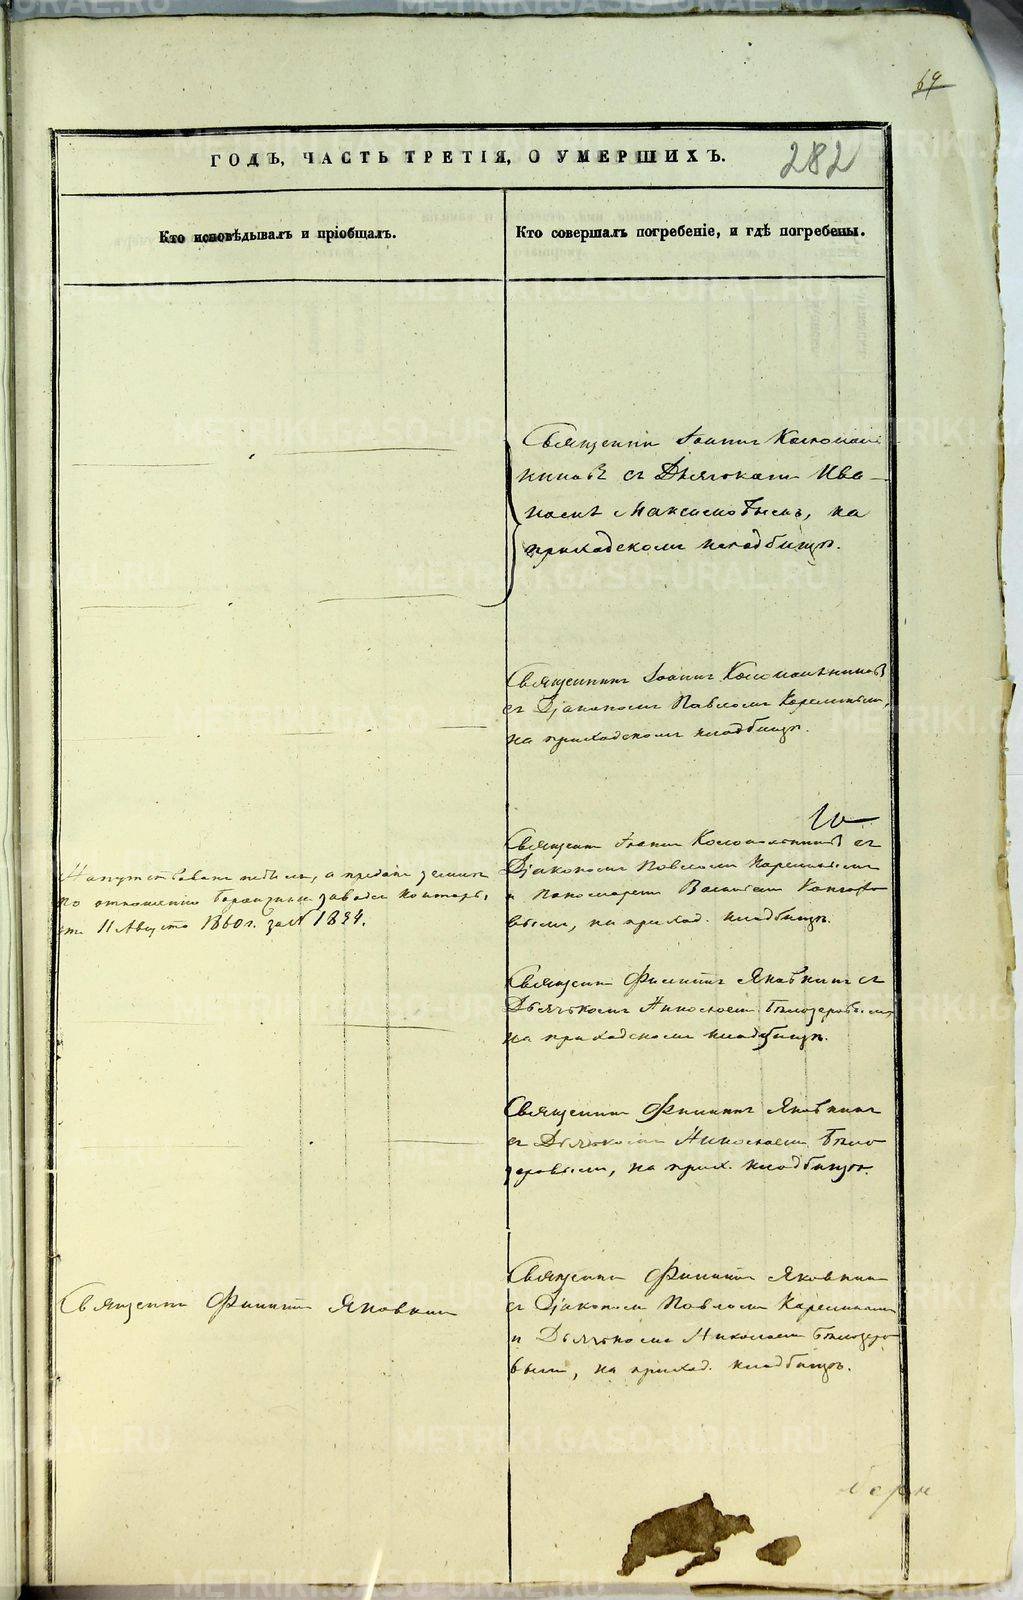 69
ГОДЪ, ЧАСТЬ ТРЕТІЯ, О УМЕРШИХЪ.
282
Кто исповѣдывалъ и пріобщалъ.
Кто совершалъ погребеніе, и гдѣ погребены.
Священникъ Іоаннъ Коломен
киновъ съ Дьячкомъ Ива
номъ Максимовымъ, на
приходскомъ кладбищѣ.
Священникъ Іоаннъ
съ Діакономъ Павломъ
на приходскомъ кладбищѣ.
Священникъ Іоаннъ съ
Діакономъ Павломъ
и Пономаремъ
вымъ, на приход. кладбищѣ.
а преданъ землѣ
по отношенію завода
отъ 11 Августа 1860 г. за № 1894.
Священникъ Филиппъ Яковкинъ съ
Дьячкомъ Николаемъ Бѣлозеровымъ
на приходскомъ кладбищѣ.
Священникъ Филиппъ Яковкинъ
съ Дьячкомъ Николаемъ Бѣло
зеровымъ, на прих. кладбищѣ.
Священникъ Филиппъ Яковкинъ
Священникъ Филиппъ Яковкинъ
съ Діакономъ Павломъ
и Дьячкомъ Николаемъ Бѣлозеро
вымъ, на приход. кладбищѣ.
METRIKI.GASO-URAL.RU